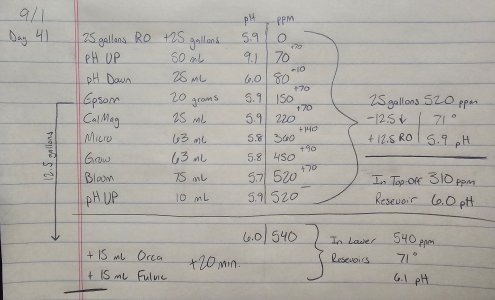 9/1
Day 41
pH ppm
25 gallons RO +25 gallons 5.9 0
pH UP 50 mL 9.1 70 +70
pH Down 25 mL 6.0 80 +10
Epsom 20 grams 5.9 150 +70
CalMag 25 mL 5.9 220 +70
Micro 63 mL 5.8 360 +140
Grow 63 mL 5.8 450 +90
Bloom 75 mL 5.7 520 +70
pH UP 10 mL 5.9 520 –
25 gallons 520 ppm
-12.5 ↓ 71°
+12.5 RO 5.9 pH
In Top-off 310 ppm
Reservoir 6.0 pH
12.5 gallons
6.0 540
+ 15 mL Orca
+ 15 mL Fulvic
+20 min.
In Lower 540 ppm
Reservoirs 71°
6.1 pH